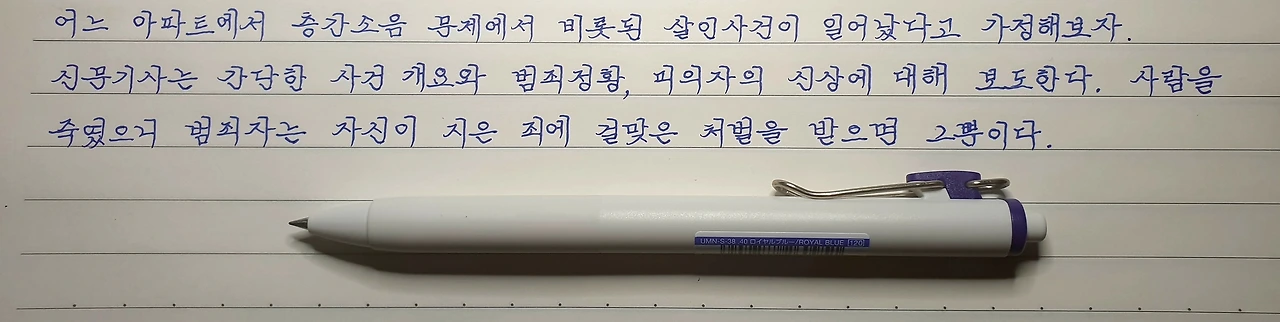 어느 아파트에서 층간소음 문제에서 비롯된 살인사건이 일어났다고 가정해보자.
신문기사는 간단한 사건 개요와 범죄정황, 피의자의 신상에 대해 보도한다. 사람을
죽였으니 범죄자는 자신이 지은 죄에 걸맞은 처벌을 받으면 그뿐이다.
UMN-S-38 .40 ロイヤルブルー/ROYAL BLUE [120]